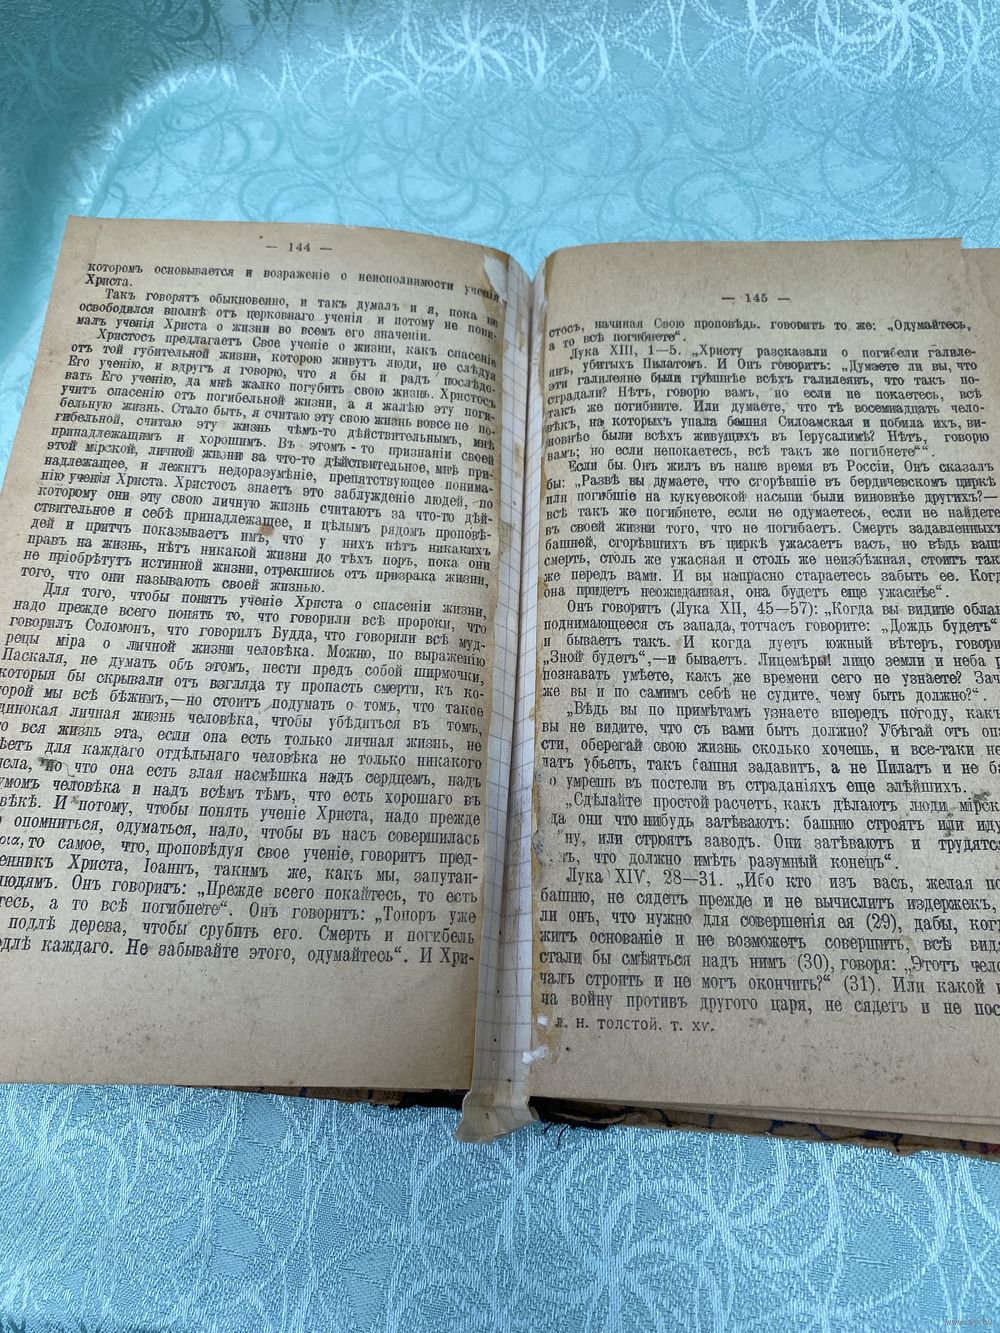 — 144 —
которомъ основывается и возраженіе о неисполнимости ученія
Христа.
Такъ говорятъ обыкновенно, и такъ думалъ и я, пока не
освободился вполнѣ отъ церковнаго ученія и потому не пони-
малъ ученія Христа о жизни во всемъ его значеніи.
Христосъ предлагаетъ Свое ученіе о жизни, какъ спасеніе
отъ той губительной жизни, которою живутъ люди, не слѣдуя
Его ученію, и вдругъ я говорю, что я бы и радъ послѣдо-
вать Его ученію, да мнѣ жалко погубить свою жизнь. Христосъ
учитъ спасенію отъ погибельной жизни, а я жалѣю эту поги-
бельную жизнь. Стало быть, я считаю эту свою жизнь вовсе не по-
гибельной, считаю эту жизнь чѣмъ-то дѣйствительнымъ, мнѣ
принадлежащимъ и хорошимъ. Въ этомъ-то признаніи своей
этой мірской, личной жизни за что-то дѣйствительное, мнѣ при-
надлежащее, и лежитъ недоразумѣніе, препятствующее понима-
нію ученія Христа. Христосъ знаетъ это заблужденіе людей, по
которому они эту свою личную жизнь считаютъ за что-то дѣй-
ствительное и себѣ принадлежащее, и цѣлымъ рядомъ проповѣ-
дей и притчъ показываетъ имъ, что у нихъ нѣтъ никакихъ
правъ на жизнь, нѣтъ никакой жизни до тѣхъ поръ, пока они
не пріобрѣтутъ истинной жизни, отрекшись отъ призрака жизни,
того, что они называютъ своей жизнью.
Для того, чтобы понять ученіе Христа о спасеніи жизни,
надо прежде всего понять то, что говорили всѣ пророки, что
говорилъ Соломонъ, что говорилъ Будда, что говорили всѣ муд-
рецы міра о личной жизни человѣка. Можно, по выраженію
Паскаля, не думать объ этомъ, нести предъ собой ширмочки,
которыя бы скрывали отъ взгляда ту пропасть смерти, къ ко-
торой мы всѣ бѣжимъ,—но стоитъ подумать о томъ, что такое
динокая личная жизнь человѣка, чтобы убѣдиться въ томъ,
о вся жизнь эта, если она есть только личная жизнь, не
ѣетъ для каждаго отдѣльнаго человѣка не только никакого
сла, но что она есть злая насмѣшка надъ сердцемъ, надъ
умомъ человѣка и надъ всѣмъ тѣмъ, что есть хорошаго въ
вѣкѣ. И потому, чтобы понять ученіе Христа, надо прежде
о опомниться, одуматься, надо, чтобы въ насъ совершилась
то самое, что, проповѣдуя свое ученіе, говоритъ пред-
енникъ Христа, Іоаннъ, такимъ же, какъ мы, запутан-
людямъ. Онъ говоритъ: „Прежде всего покайтесь, то есть
тесь, а то всѣ погибнете“. Онъ говоритъ: „Топоръ уже
подлѣ дерева, чтобы срубить его. Смерть и погибель
одлѣ каждаго. Не забывайте этого, одумайтесь“. И Хри-
— 145 —
стосъ, начиная Свою проповѣдь. говоритъ то же: „Одумайтесь,
а то всѣ погибнете“.
Лука XIII, 1—5. „Христу рассказали о погибели галиле-
янъ, убитыхъ Пилатомъ. И Онъ говоритъ: „Думаете ли вы, что
эти галилеяне были грѣшнѣе всѣхъ галилеянъ, что такъ по-
страдали? Нѣтъ, говорю вамъ, но если не покаетесь, всѣ
такъ же погибните. Или думаете, что тѣ восемнадцать чело-
вѣкъ, на которыхъ упала башня Силоамская и побила ихъ, ви-
новнѣе были всѣхъ живущихъ въ Іерусалимѣ? Нѣтъ, говорю
вамъ; но если непокаетесь, всѣ такъ же погибнете““.
Если бы Онъ жилъ въ наше время въ Россіи, Онъ сказалъ
бы: „Развѣ вы думаете, что сгорѣвшіе въ бердичевскомъ циркѣ
или погибшіе на кукуевской насыпи были виновнѣе другихъ?—
всѣ такъ же погибнете, если не одумаетесь, если не найдете
въ своей жизни того, что не погибаетъ. Смерть задавленныхъ
башней, сгорѣвшихъ въ циркѣ ужасаетъ васъ, но вѣдь ваша
смерть, столь же ужасная и столь же неизбѣжная, стоитъ такъ
же передъ вами. И вы напрасно стараетесь забыть ее. Когд
она придетъ неожиданная, она будетъ еще ужаснѣе“.
Онъ говоритъ (Лука XII, 45—57): „Когда вы видите облак
поднимающееся съ запада, тотчасъ говорите: „Дождь будетъ“
и бываетъ такъ. И когда дуетъ южный вѣтеръ, говори
„Зной будетъ“,—и бываетъ. Лицемѣры! лицо земли и неба р
познавать умѣете, какъ же времени сего не узнаете? Зач
же вы и по самимъ себѣ не судите, чему быть должно?“.
„Вѣдь вы по примѣтамъ узнаете впередъ погоду, какъ
вы не видите, что съ вами быть должно? Убѣгай отъ опа
сти, оберегай свою жизнь сколько хочешь, и все-таки не
латъ убьетъ, такъ башня задавитъ, а не Пилатъ и не ба
о умрешь въ постели въ страданіяхъ еще злѣйшихъ.
„Сдѣлайте простой расчетъ, какъ дѣлаютъ люди мірск
да они что-нибудь затѣваютъ: башню строятъ или иду
ну, или строятъ заводъ. Они затѣваютъ и трудятся
ъ, что должно имѣть разумный конецъ“.
Лука XIV, 28—31. „Ибо кто изъ васъ, желая по
башню, не сядетъ прежде и не вычислитъ издержекъ,
ли онъ, что нужно для совершенія ея (29), дабы, когд
житъ основаніе и не возможетъ совершить, всѣ вида
стали бы смѣяться надъ нимъ (30), говоря: „Этотъ чело
чалъ строить и не могъ окончить?“ (31). Или какой ц
на войну противъ другого царя, не сядетъ и не пос
Л. Н. ТОЛСТОЙ. Т. XV.